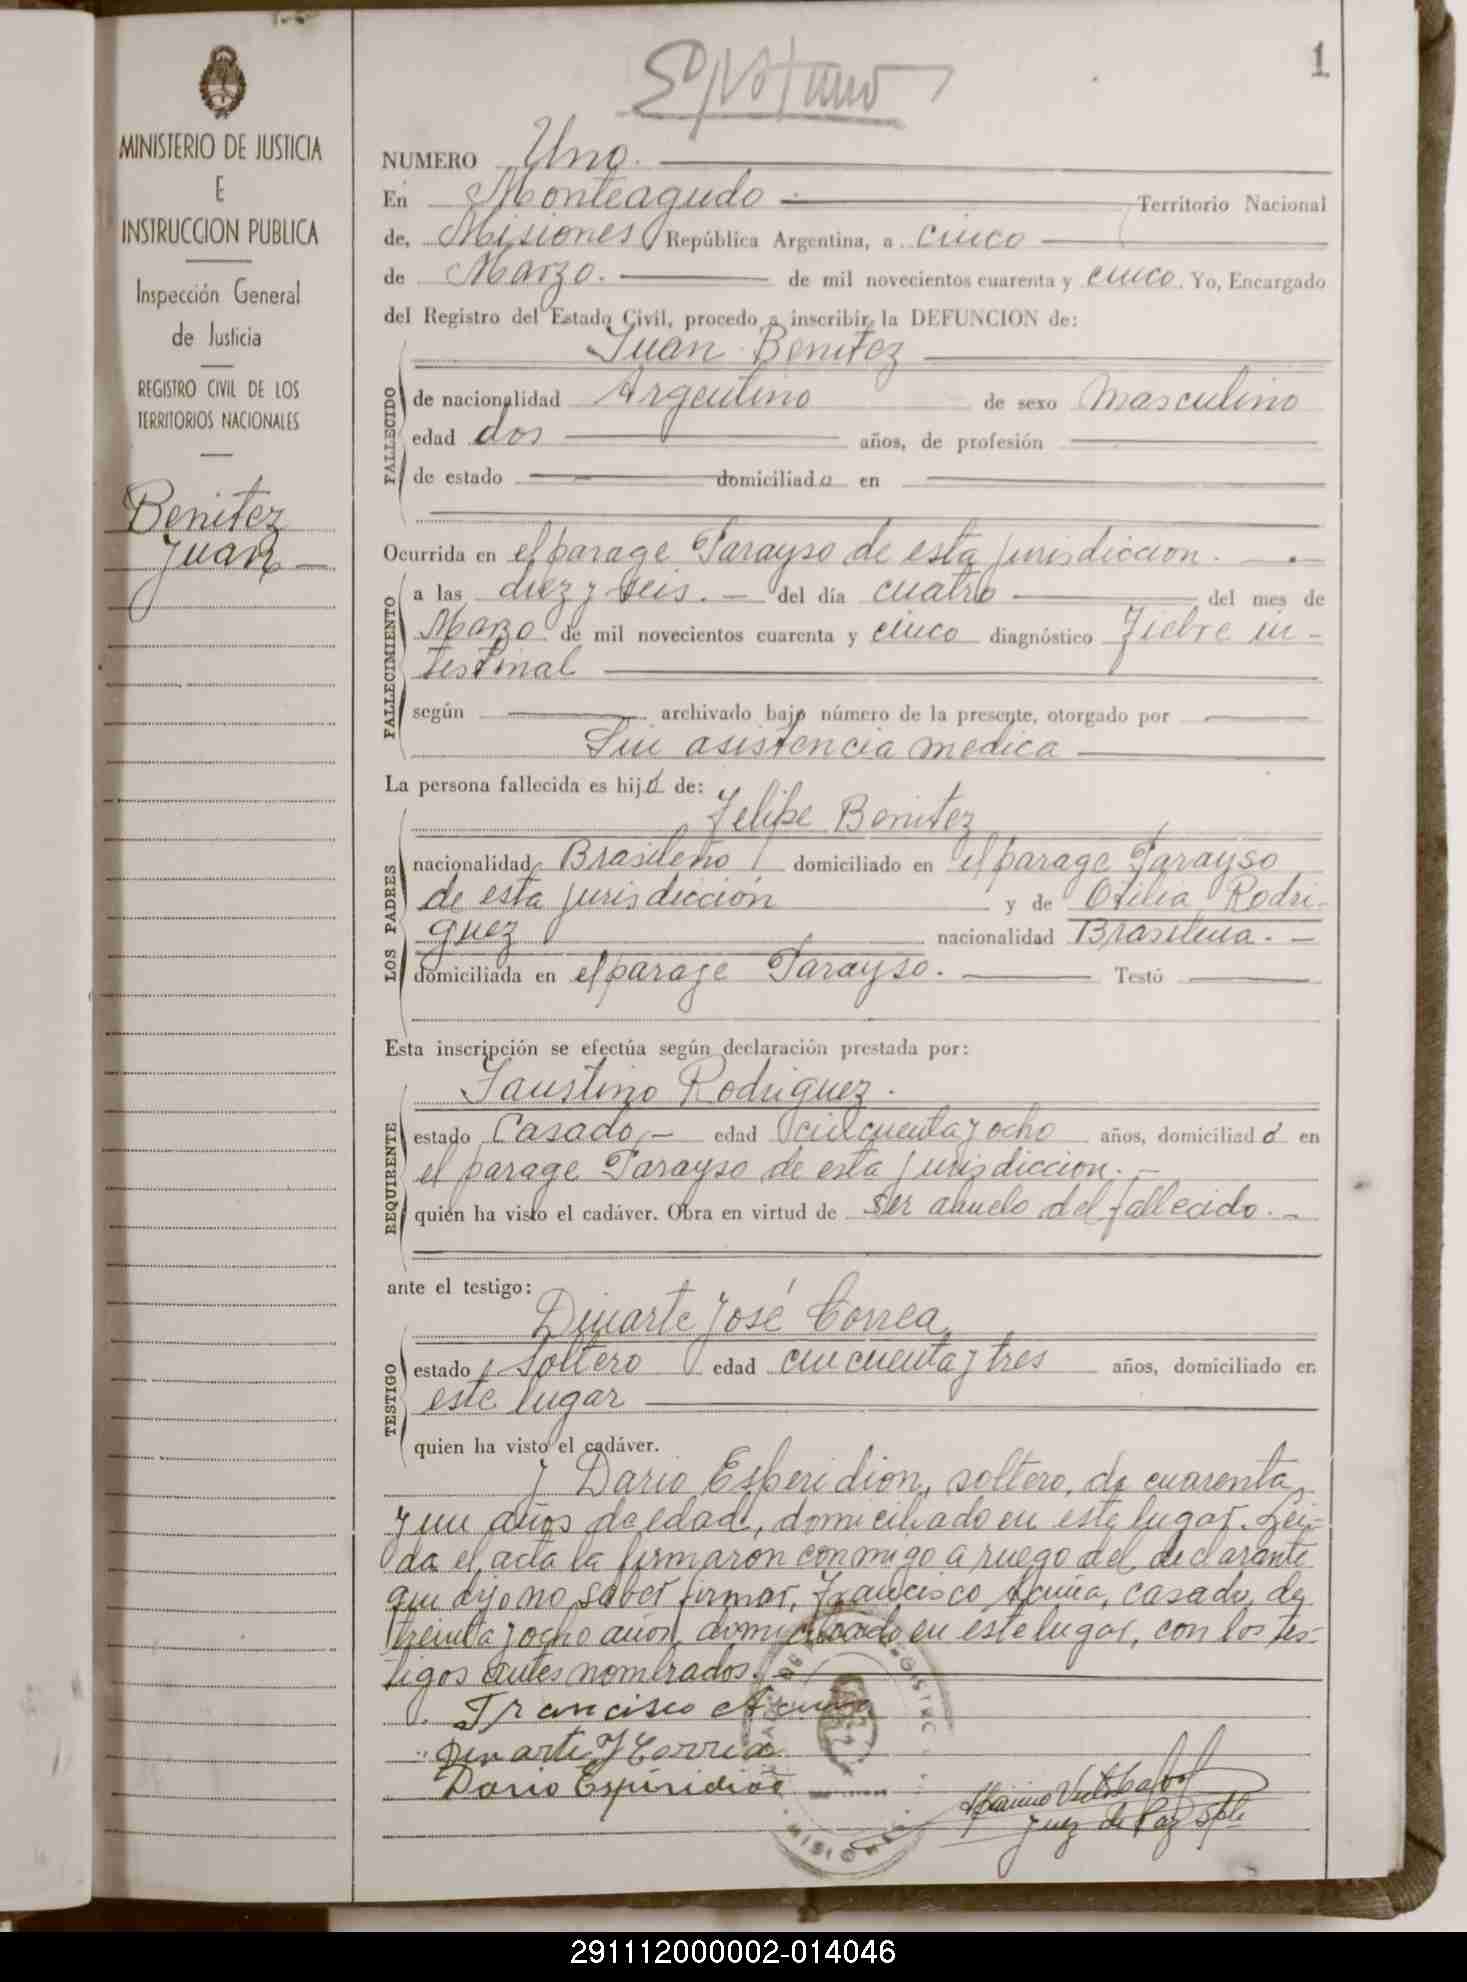 1
MINISTERIO DE JUSTICIA
E
INSTRUCCION PUBLICA
Inspección General
de Justicia
REGISTRO CIVIL DE LOS
TERRITORIOS NACIONALES
Benitez
Juan
NUMERO Uno.
En Monteagudo Territorio Nacional
de, Misiones República Argentina, a cinco
de Marzo. de mil novecientos cuarenta y cinco. Yo, Encargado
del Registro del Estado Civil, procedo a inscribir la DEFUNCION de:
Juan Benitez
FALLECIDO
de nacionalidad Argentino de sexo Masculino
edad dos años, de profesión
de estado domiciliado en
Ocurrida en el parage Parayso de esta jurisdiccion.
FALLECIMIENTO
a las diez y seis. del día cuatro del mes de
Marzo de mil novecientos cuarenta y cinco diagnóstico Fiebre in-
testinal
según archivado bajo número de la presente, otorgado por
Sin asistencia medica
La persona fallecida es hijo de:
Felipe Benitez
LOS PADRES
nacionalidad Brasileño domiciliado en el parage Parayso
de esta jurisdiccion y de Otilia Rodri-
guez nacionalidad Brasilena.
domiciliada en el parage Parayso. Testó
Esta inscripción se efectúa según declaración prestada por:
Faustino Rodriguez.
REQUIRENTE
estado Casado, edad cincuenta y ocho años, domiciliado en
el parage Parayso de esta jurisdiccion.
quién ha visto el cadáver. Obra en virtud de ser abuelo del fallecido.
ante el testigo:
Dinarte José Correa
TESTIGO
estado soltero edad cincuenta y tres años, domiciliado en
este lugar
quien ha visto el cadáver.
y Dario Esperidion, soltero, de cuarenta
y un años de edad, domiciliado en este lugar. Lei-
da el acta la firmaron conmigo a ruego del declarante
que dijo no saber firmar, Francisco Acuña, casado, de
treinta y ocho años, domiciliado en este lugar, con los tes-
tigos antes nombrados.
Francisco Acuña
Dinarte J Correa
Dario Espiridion
Juez de Paz Sple
MISIONES
291112000002-014046